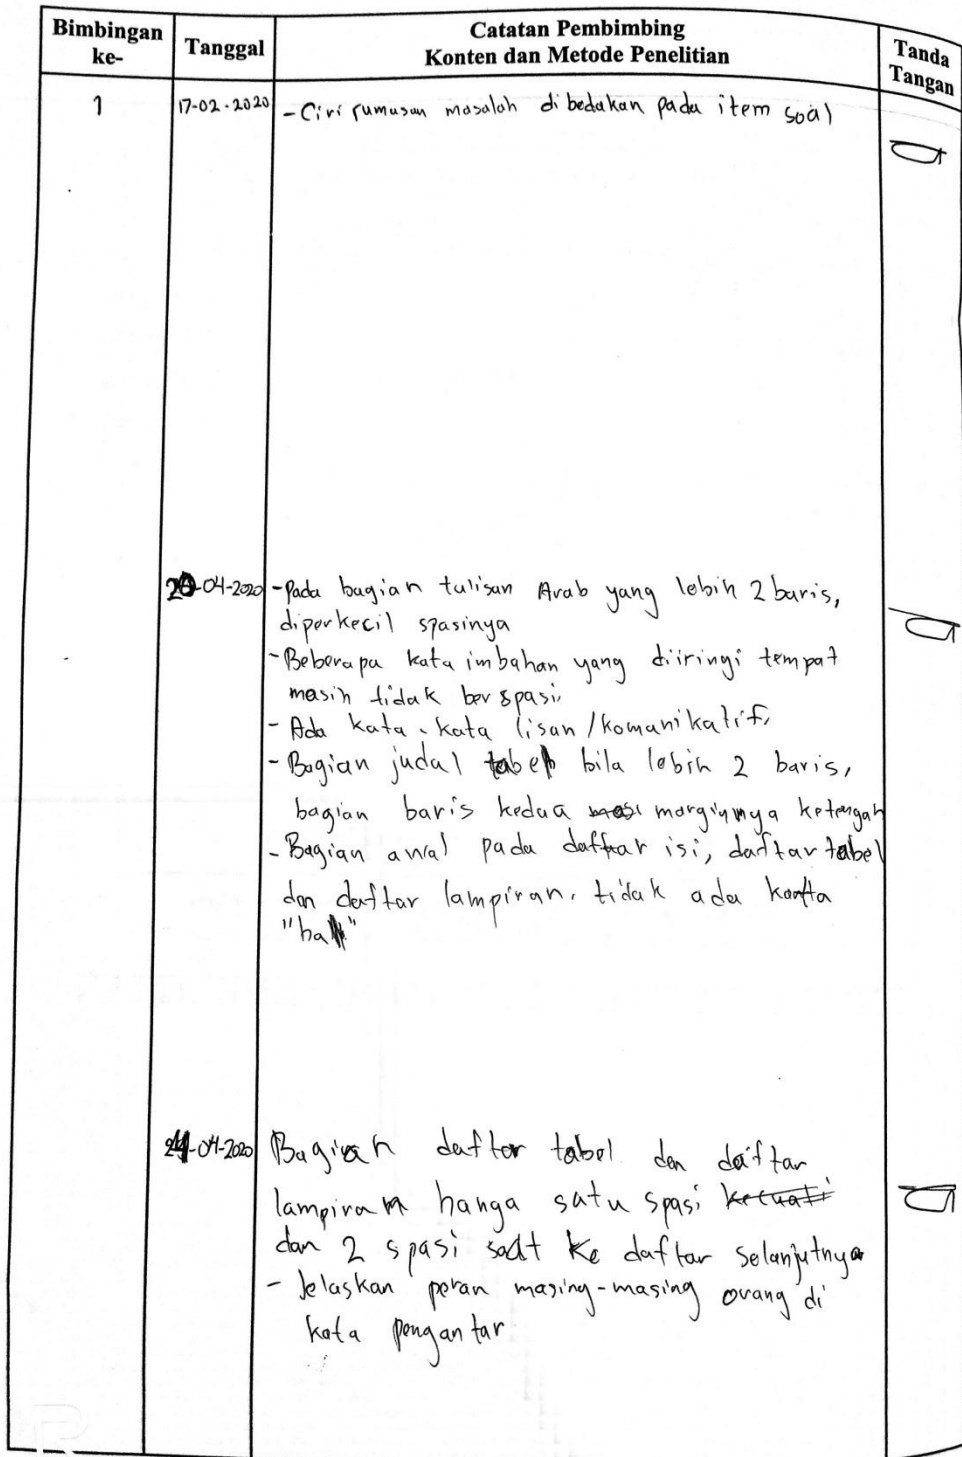 Bimbingan ke-
Tanggal
Catatan Pembimbing
Konten dan Metode Penelitian
Tanda Tangan
1
17-02-2020
- Ciri rumusan masalah dibedakan pada item soal
20-04-2020
- Pada bagian tulisan Arab yang lebih 2 baris,
diperkecil spasinya
- Beberapa kata imbahan yang diiringi tempat
masih tidak berspasi
- Ada kata-kata lisan/komunikatif,
- Bagian judul tabel bila lebih 2 baris,
bagian baris kedua marginnya ketengah
- Bagian awal pada daftar isi, daftar tabel
dan daftar lampiran, tidak ada kata
"bab"
24-04-2020
Bagian daftar tabel dan daftar
lampiran hanya satu spasi kecuali
dan 2 spasi saat ke daftar selanjutnya
- Jelaskan peran masing-masing orang di
kata pengantar